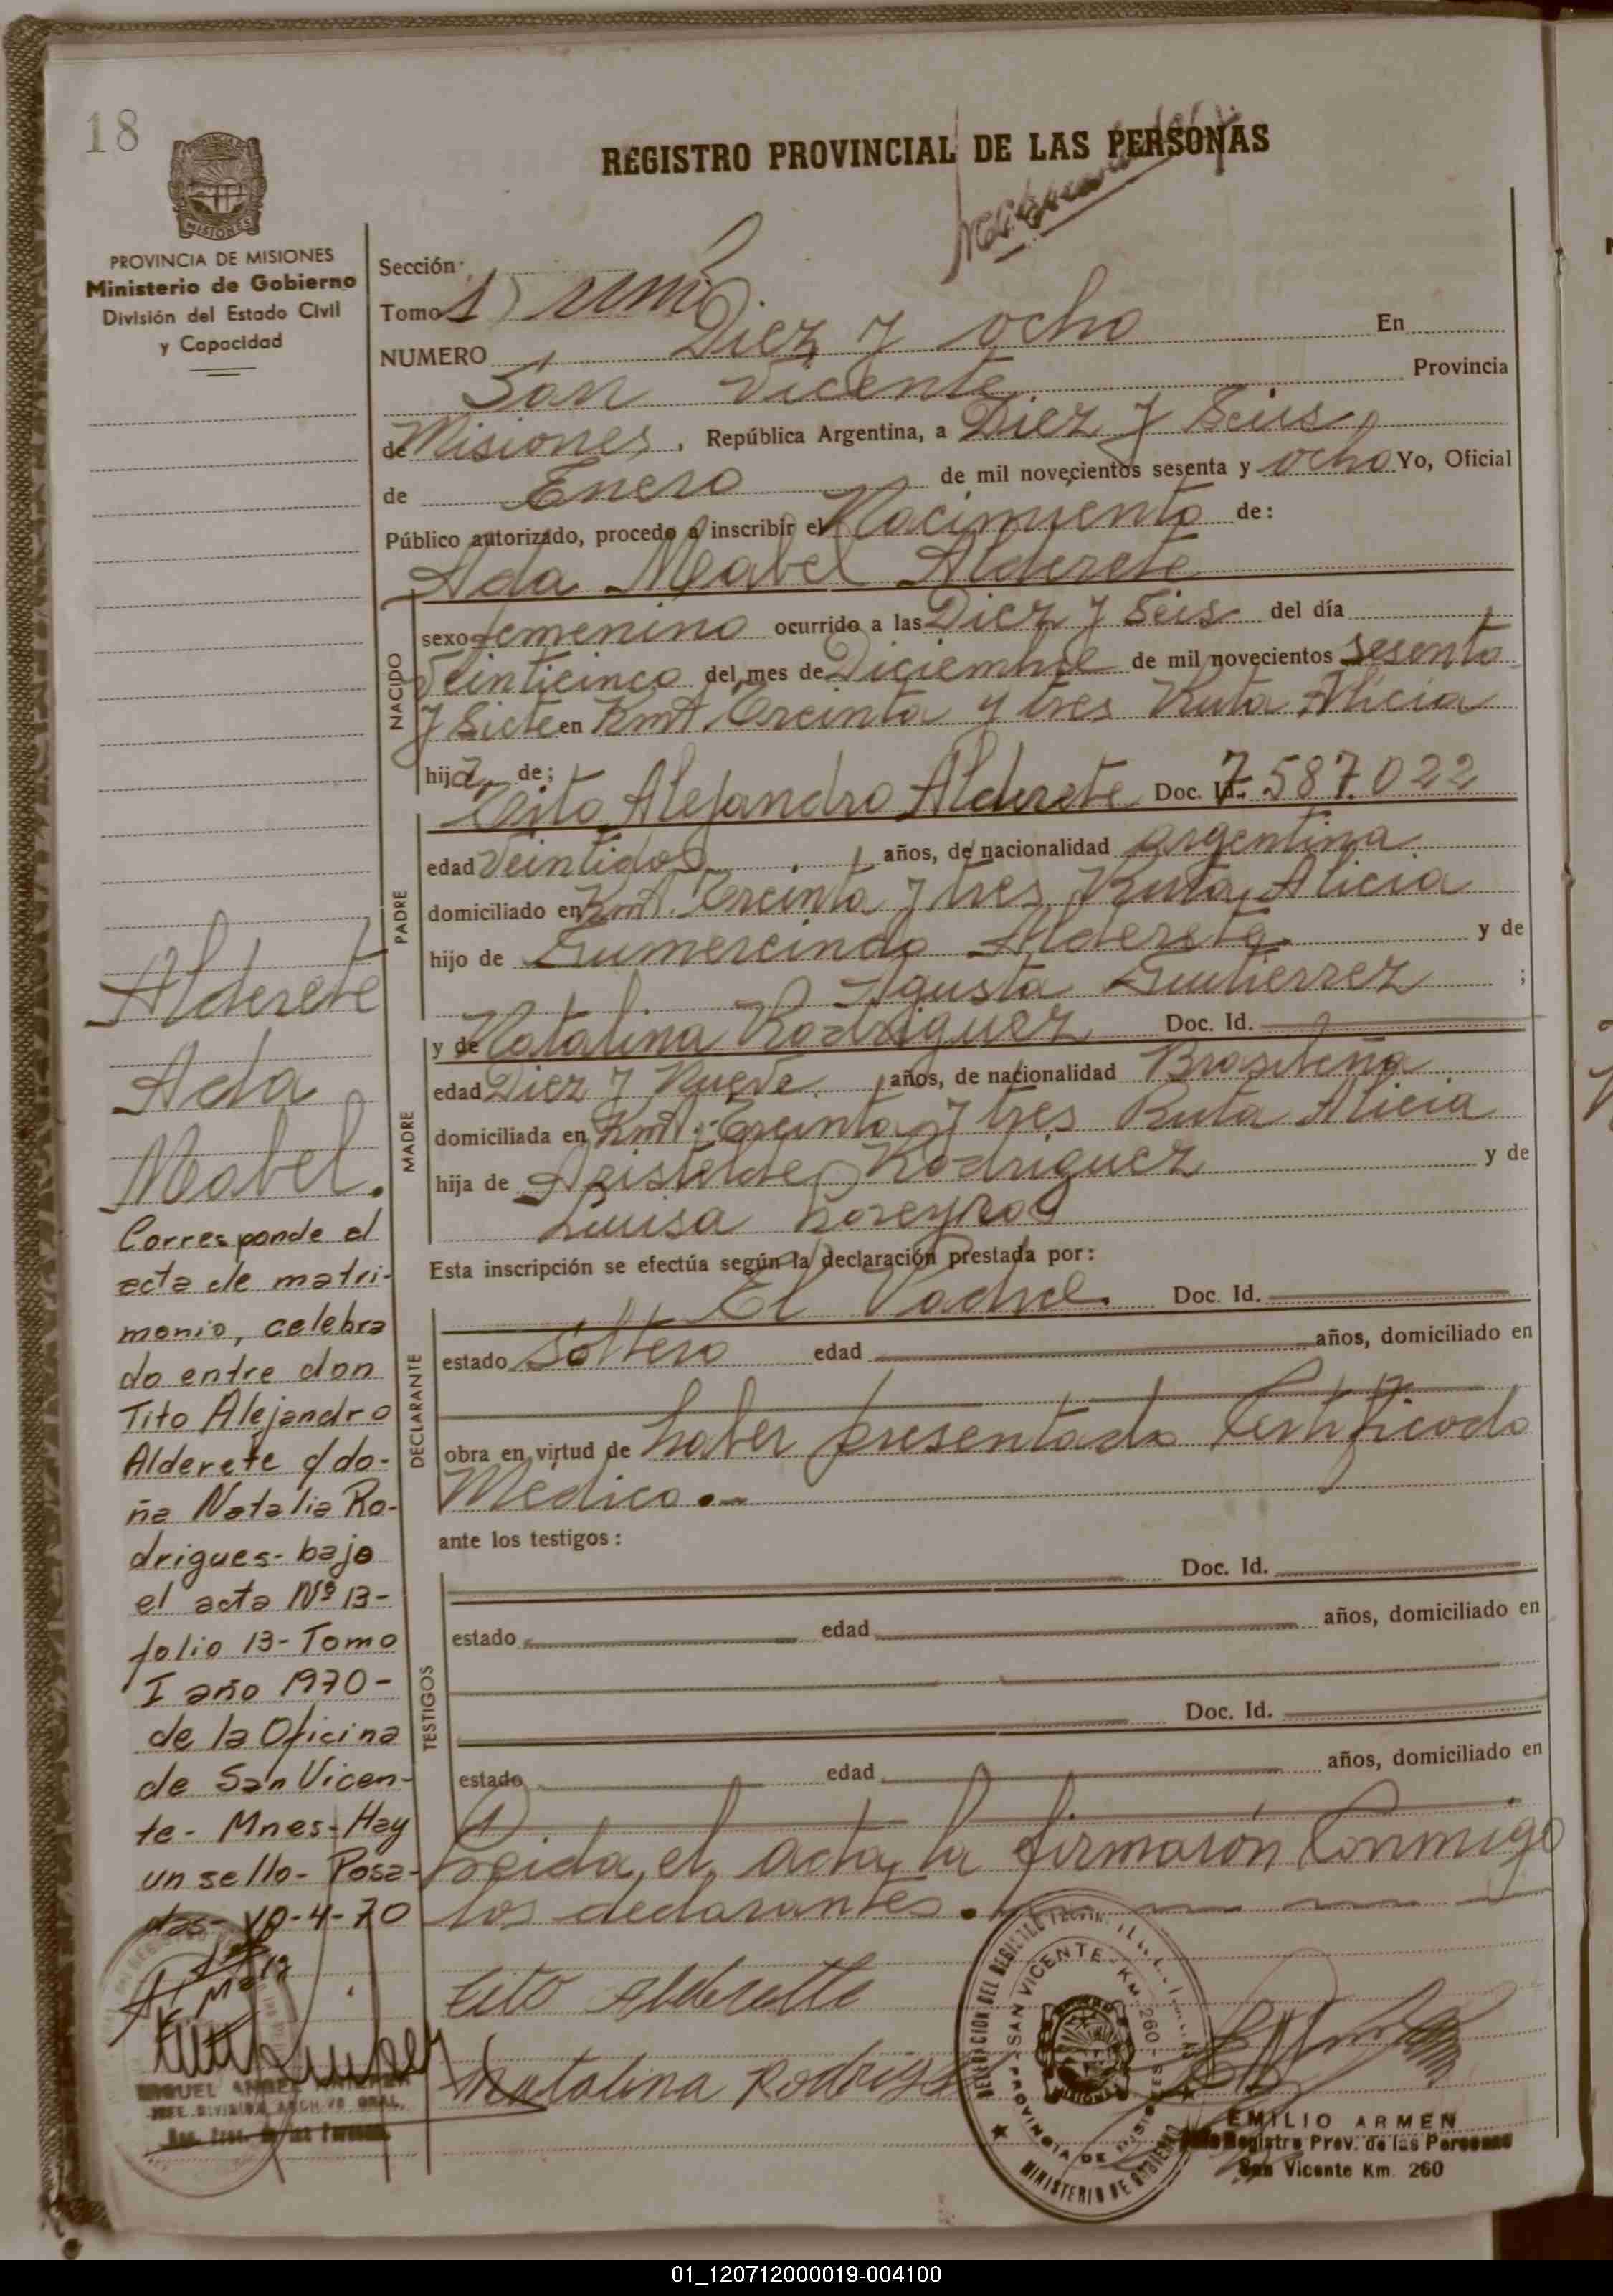 18
REGISTRO PROVINCIAL DE LAS PERSONAS
PROVINCIA DE MISIONES
Ministerio de Gobierno
División del Estado Civil
y Capacidad
Sección
Tomo 1)
NUMERO Diez y ocho En
San Vicente Provincia
de Misiones, República Argentina, a Diez y Seis
de Enero de mil novecientos sesenta y ocho Yo, Oficial
Público autorizado, procedo a inscribir el Nacimiento de:
Ada Mabel Alderete
NACIDO
sexo femenino ocurrido a las Diez y Seis del día
Veinticinco del mes de Diciembre de mil novecientos sesenta
y Siete en Kmt. Treinta y tres Ruta Alicia
hija de;
PADRE
Tito Alejandro Alderete Doc. Id. 7.587.022
edad Veintidos años, de nacionalidad argentina
domiciliado en Kmt. Treinta y tres Ruta Alicia
hijo de Gumercindo Alderete y de
Agusta Gutierrez ;
MADRE
y de Natalina Rodriguez Doc. Id.
edad Diez y Nueve años, de nacionalidad Brasileña
domiciliada en Kmt. Treinta y tres Ruta Alicia
hija de Aristides Rodriguez y de
Luisa
Esta inscripción se efectúa según la declaración prestada por:
DECLARANTE
El Padre. Doc. Id.
estado Soltero edad años, domiciliado en
obra en virtud de haber presentado Certificado
Medico.
ante los testigos:
TESTIGOS
Doc. Id.
estado edad años, domiciliado en
Doc. Id.
estado edad años, domiciliado en
Leida el acta, la firmarón Conmigo
los declarantes.
Tito Alderette
Natalina Rodrigz
Alderete
Ada
Mabel.
Corresponde al
acta de matri-
monio, celebra
do entre don
Tito Alejandro
Alderete y do-
ña Natalia Ro-
drigues- bajo
el acta Nº 13-
folio 13- Tomo
I año 1970-
de la Oficina
de San Vicen-
te- Mnes- Hay
un sello- Posa-
das- 10-4-70
MIGUEL ANGEL
JEFE DIVISION ARCHIVO GRAL.
Reg. Prov. de las Personas
SAN VICENTE - KM. 260
PROVINCIA DE MISIONES
MINISTERIO DE GOBIERNO
EMILIO ARMEN
Registro Prov. de las Personas
San Vicente Km. 260
01_120712000019-004100